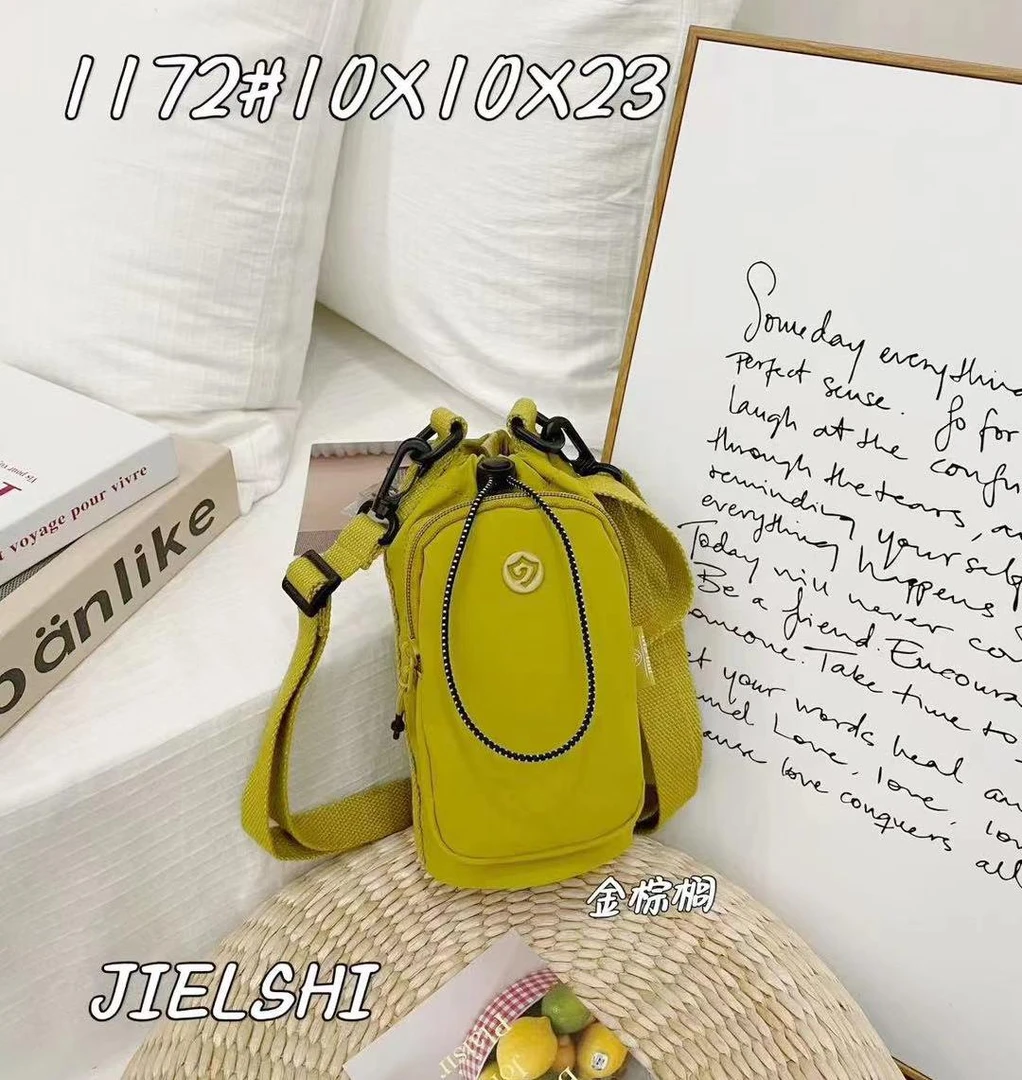 1172#10X10X23
Someday everything
perfect sense. So for
laugh at the confu
through the tears, a
reminding yourself
everything happens
Today will never co
Be a friend. Encoura
omeone. Take time to
t your words heal an
Love, love, lo
ause love conquers all
voyage pour vivre
änlike
金棕榈
JIELSHI
Plaisir